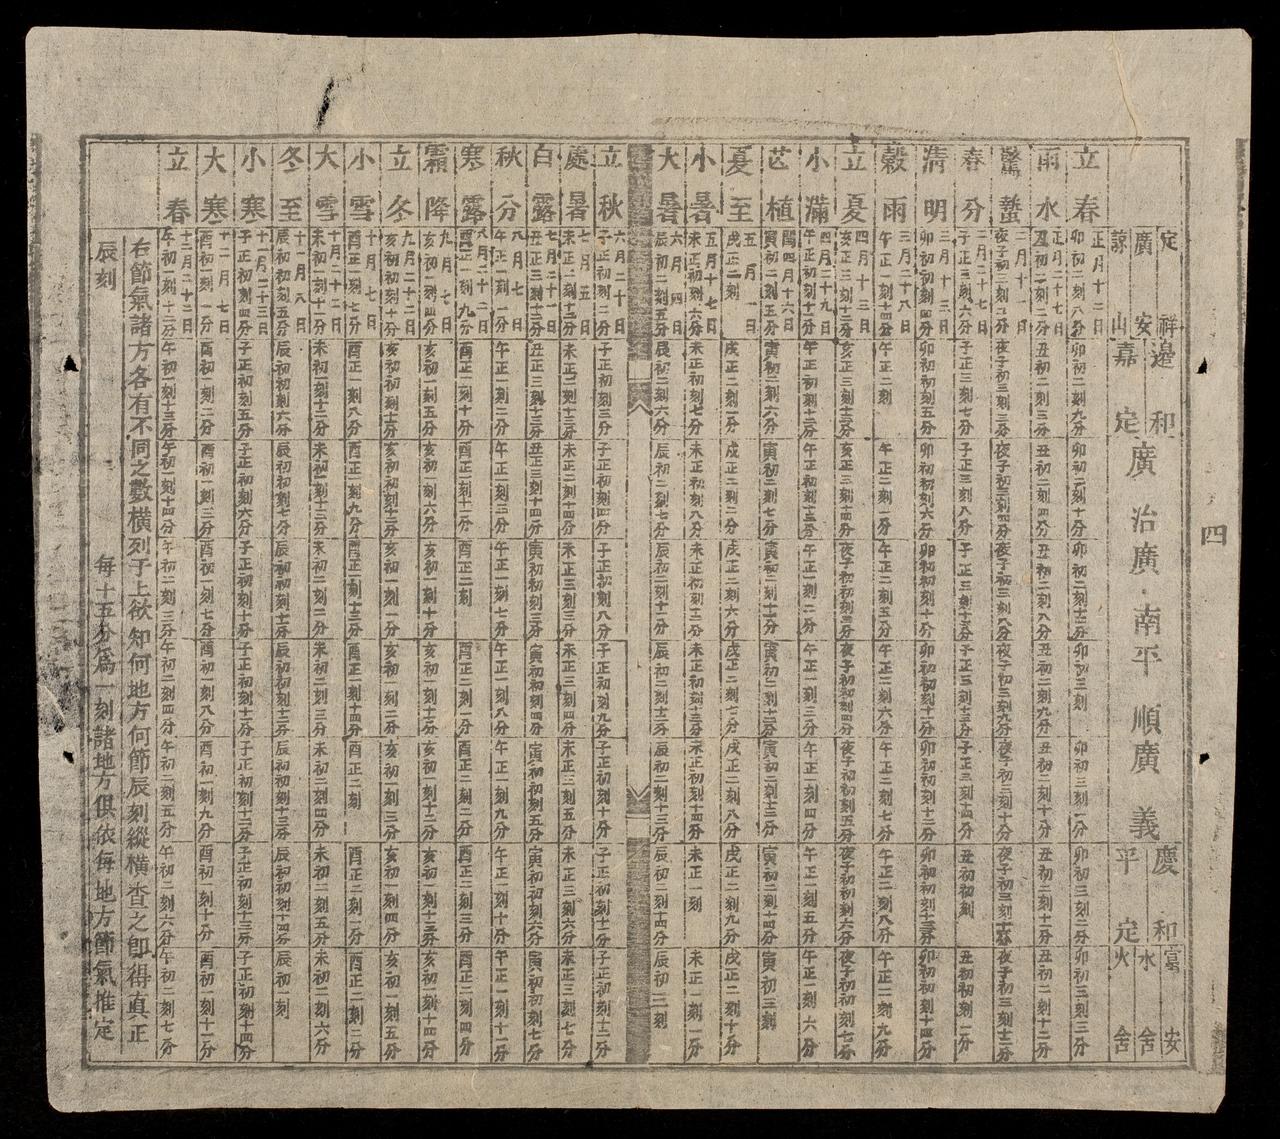 四
定祥 邊和 廣治 廣南 平順 廣義 慶和 富安
廣安 嘉定 平定 水舍
諒山 火舍
立春 正月十二日 卯初二刻八分 卯初二刻九分 卯初二刻十分 卯初二刻十三分 卯初三刻 卯初三刻一分 卯初三刻二分 卯初三刻三分
雨水 正月二十七日 丑初二刻二分 丑初二刻三分 丑初二刻四分 丑初二刻八分 丑初二刻九分 丑初二刻十分 丑初二刻十一分 丑初二刻十二分
驚蟄 二月十一日 夜子初三刻二分 夜子初三刻三分 夜子初三刻四分 夜子初三刻八分 夜子初三刻九分 夜子初三刻十分 夜子初三刻十一分 夜子初三刻十二分
春分 二月二十七日 子正三刻六分 子正三刻七分 子正三刻八分 子正三刻十二分 子正三刻十三分 子正三刻十四分 丑初初刻 丑初初刻一分
清明 三月十三日 卯初初刻四分 卯初初刻五分 卯初初刻六分 卯初初刻十分 卯初初刻十一分 卯初初刻十二分 卯初初刻十三分 卯初初刻十四分
穀雨 三月二十八日 午正一刻十四分 午正二刻 午正二刻一分 午正二刻五分 午正二刻六分 午正二刻七分 午正二刻八分 午正二刻九分
立夏 四月十三日 亥正三刻十二分 亥正三刻十三分 亥正三刻十四分 夜子初初刻三分 夜子初初刻四分 夜子初初刻五分 夜子初初刻六分 夜子初初刻七分
小滿 四月二十九日 午正初刻十一分 午正初刻十二分 午正初刻十三分 午正一刻二分 午正一刻三分 午正一刻四分 午正一刻五分 午正一刻六分
芒植 閏四月十六日 寅初二刻五分 寅初二刻六分 寅初二刻七分 寅初二刻十一分 寅初二刻十二分 寅初二刻十三分 寅初二刻十四分 寅初三刻
夏至 五月一日 戌正二刻 戌正二刻一分 戌正二刻二分 戌正二刻六分 戌正二刻七分 戌正二刻八分 戌正二刻九分 戌正二刻十分
小暑 五月十七日 未正初刻六分 未正初刻七分 未正初刻八分 未正初刻十二分 未正初刻十三分 未正初刻十四分 未正一刻 未正一刻一分
大暑 六月四日 辰初二刻五分 辰初二刻六分 辰初二刻七分 辰初二刻十一分 辰初二刻十二分 辰初二刻十三分 辰初二刻十四分 辰初三刻
立秋 六月二十日 子正初刻二分 子正初刻三分 子正初刻四分 子正初刻八分 子正初刻九分 子正初刻十分 子正初刻十一分 子正初刻十二分
處暑 七月五日 未正二刻十二分 未正二刻十三分 未正二刻十四分 未正三刻三分 未正三刻四分 未正三刻五分 未正三刻六分 未正三刻七分
白露 七月二十一日 丑正三刻十二分 丑正三刻十三分 丑正三刻十四分 寅初初刻三分 寅初初刻四分 寅初初刻五分 寅初初刻六分 寅初初刻七分
秋分 八月七日 午正一刻一分 午正一刻二分 午正一刻三分 午正一刻七分 午正一刻八分 午正一刻九分 午正一刻十分 午正一刻十一分
寒露 八月二十二日 酉正一刻九分 酉正一刻十分 酉正一刻十一分 酉正二刻 酉正二刻一分 酉正二刻二分 酉正二刻三分 酉正二刻四分
霜降 九月七日 亥初一刻四分 亥初一刻五分 亥初一刻六分 亥初一刻十分 亥初一刻十一分 亥初一刻十二分 亥初一刻十三分 亥初一刻十四分
立冬 九月二十二日 亥初初刻十分 亥初初刻十一分 亥初初刻十二分 亥初一刻一分 亥初一刻二分 亥初一刻三分 亥初一刻四分 亥初一刻五分
小雪 十月七日 酉正一刻七分 酉正一刻八分 酉正一刻九分 酉正一刻十三分 酉正一刻十四分 酉正二刻 酉正二刻一分 酉正二刻二分
大雪 十月二十二日 未初一刻十一分 未初一刻十二分 未初一刻十三分 未初二刻二分 未初二刻三分 未初二刻四分 未初二刻五分 未初二刻六分
冬至 十一月八日 辰初初刻五分 辰初初刻六分 辰初初刻七分 辰初初刻十一分 辰初初刻十二分 辰初初刻十三分 辰初初刻十四分 辰初一刻
小寒 十一月二十三日 子正初刻四分 子正初刻五分 子正初刻六分 子正初刻十分 子正初刻十一分 子正初刻十二分 子正初刻十三分 子正初刻十四分
大寒 十二月七日 酉初一刻一分 酉初一刻二分 酉初一刻三分 酉初一刻七分 酉初一刻八分 酉初一刻九分 酉初一刻十分 酉初一刻十一分
立春 十二月二十二日 午初一刻十二分 午初一刻十三分 午初一刻十四分 午初二刻三分 午初二刻四分 午初二刻五分 午初二刻六分 午初二刻七分
右節氣諸方各有不同之數橫列于上欲知何地方何節辰刻縱橫查之卽得眞正
辰刻 每十五分爲一刻諸地方俱依每地方節氣推定